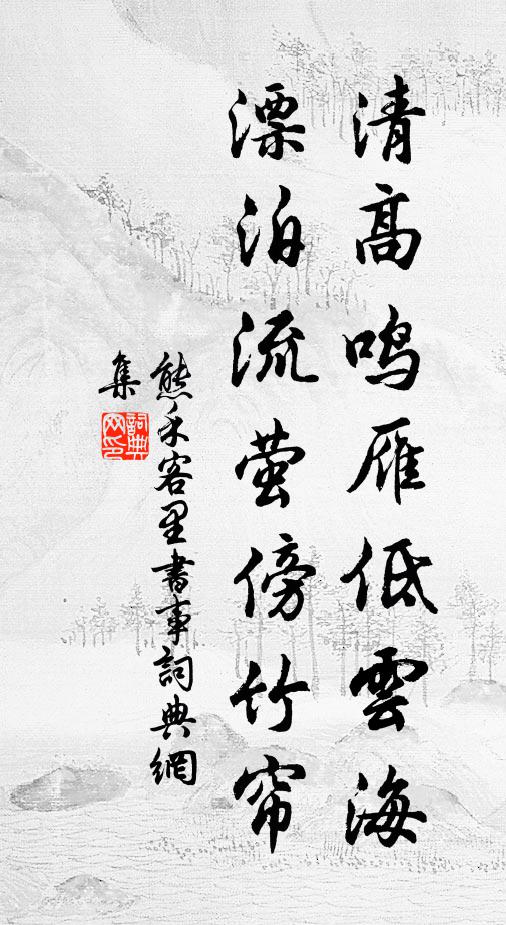 清高鸣雁低雲海
漂泊流萤傍竹帘
熊禾客里書事詞典網
集
詞典
网印